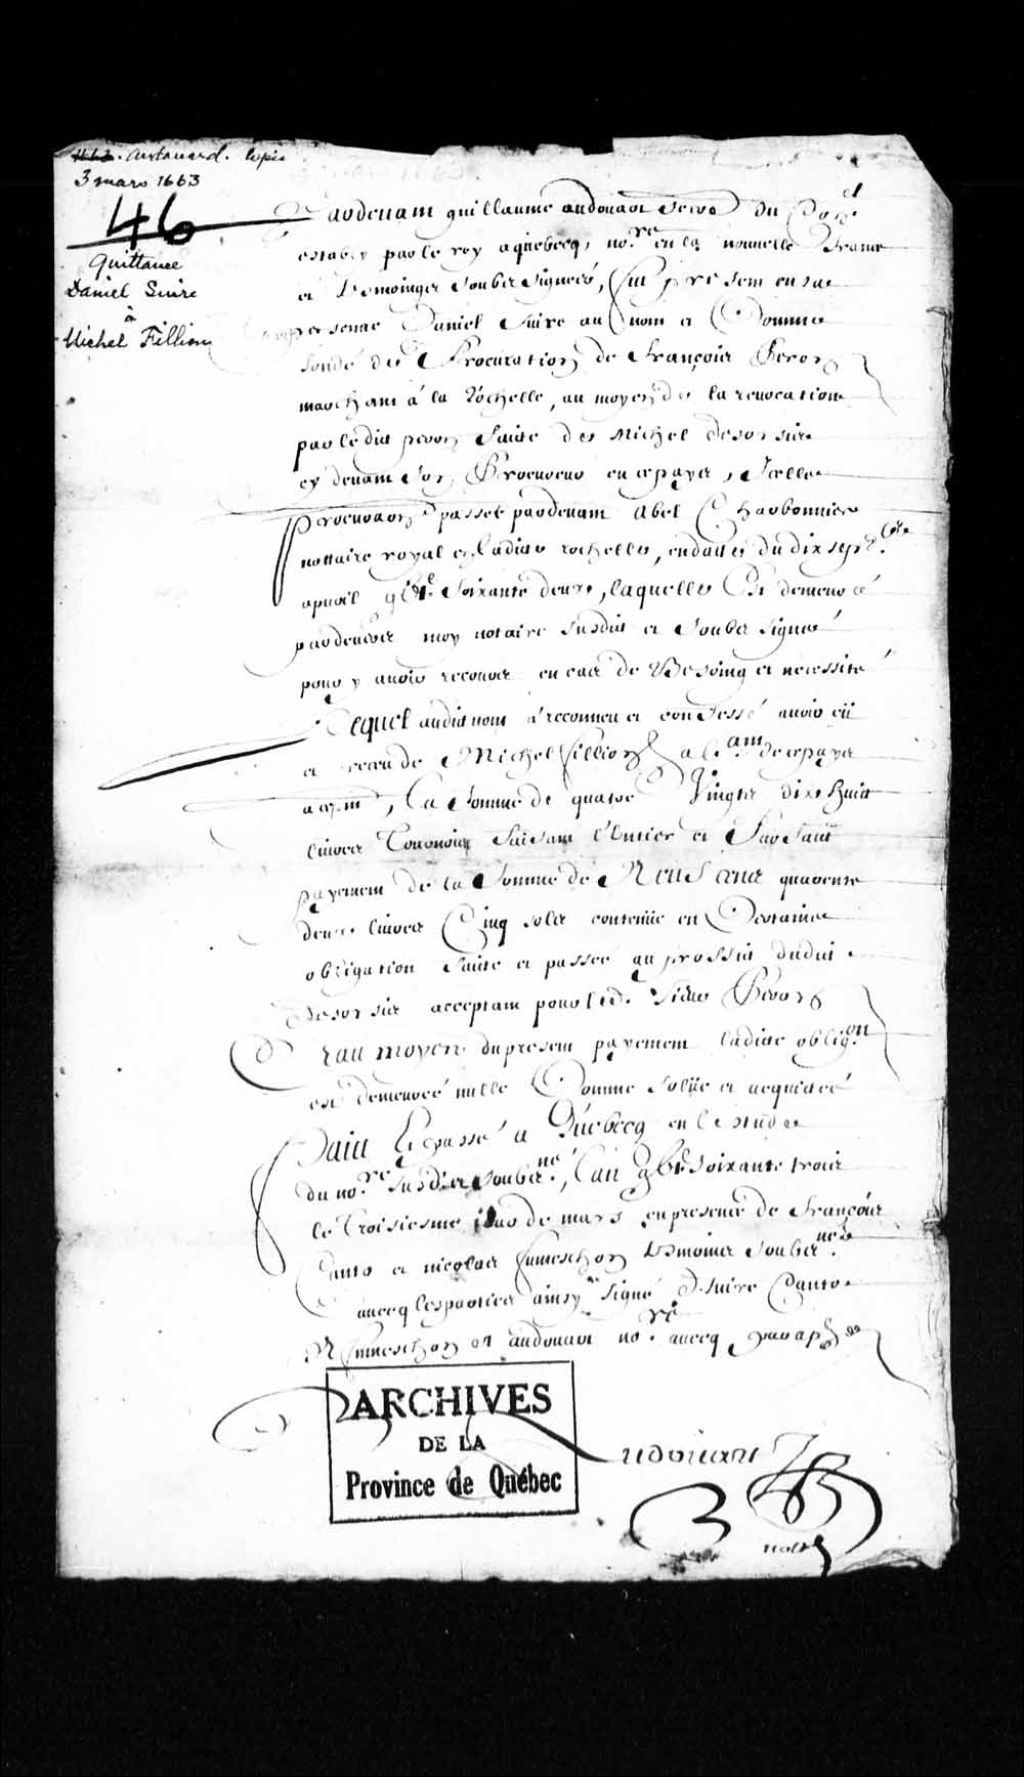 Audouard. copie
3 mars 1663
46
Quittance
Daniel Suire
à
Michel Fillion
Pardevant guillaume audouart secre du Con.el
estably par le roy a quebecq, no.re en la nouvelle France
et tesmoings soubz signéz, fut present en sa
personne Daniel Suire au nom et Comme
fondé de Procuration de François Peron
marchant à la Rochelle, au moyen de la revocation
par ledit peron faite de Michel desorsis
cy devant son Procureur en ce païs, Icelle
Procuraon passée pardevant Abel Charbonnier
nottaire royal en ladite rochelle, en datte du dix sept.
apvril soixante deux, laquelle Est demeurée
pardevers moy notaire susdit et soubz signé
pour y avoir recours en cas de Besoing et necessité
Lequel audit nom à reconneu et confessé avoir eü
et receu de Michel fillion de ce païs
la somme de quatre Vingtz dix huit
livres Tournois faisant l'Entier et Parfait
payement de la somme de Neuf centz quarente
deux livres Cinq solz contenüe en Certaine
obligation faite et passée au proffit dudit
desorsis acceptant pour led. sieur Peron
Et au moyen du present payement ladite oblig.on
est demeurée nulle Comme solüe et acquitée
Fait Et passé a Québecq en l'estude
du no.re susdit et soubz.né, l'an soixante trois
le Troisiesme jour de mars en presence de François
et nicolas tesmoins soubz.nez
avecq les parties ainsy signé D. suire
et audouart no.re avecq paraphes
Audouart
nott
ARCHIVES
DE LA
Province de Québec